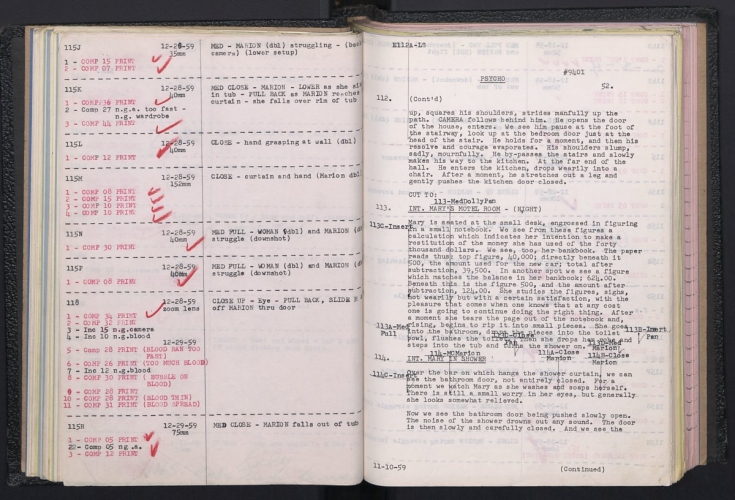 115J 12-28-59 MED - MARION (dbl) struggling -
35mm camera) (lower setup)
1 - COMP 15 PRINT
2 - COMP 07 PRINT
115K 12-28-59 MED CLOSE - MARION - LOWER as she
40mm in tub - PULL BACK as MARION
1 - COMP 36 PRINT curtain - she falls over rim of tub
2 - Comp 27 n.g.a. too fast -
n.g. wardrobe
3 - COMP 44 PRINT
115L 12-28-59 CLOSE - hand grasping at wall (dbl)
40mm
1 - COMP 12 PRINT
115M 12-28-59 CLOSE - curtain and hand (Marion dbl
152mm
1 - COMP 08 PRINT
2 - COMP 15 PRINT
3 - COMP 10 PRINT
4 - COMP 10 PRINT
115N 12-28-59 MED FULL - WOMAN (dbl) and MARION
40mm struggle (downshot)
1 - COMP 30 PRINT
115P 12-28-59 MED FULL - WOMAN (dbl) and MARION
40mm struggle (downshot)
1 - COMP 08 PRINT
118 12-28-59 CLOSE UP - Eye - PULL BACK, SLIDE
zoom lens off MARION thru door
1 - COMP 34 PRINT
2 - COMP 32 PRINT
3 - Inc 15 n.g.camera
4 - Inc 10 n.g.blood
12-29-59
5 - Comp 28 PRINT (BLOOD RAN TOO
FAST)
6 - COMP 26 PRINT (TOO MUCH BLOOD)
7 - Inc 12 n.g.blood
8 - COMP 30 PRINT ( BUBBLE ON
BLOOD)
9 - COMP 28 PRINT
10 - COMP 28 PRINT (BLOOD THIN)
11 - COMP 31 PRINT (BLOOD SPREAD)
115R 12-29-59 MED CLOSE - MARION falls out of tub
75mm
1 - COMP 05 PRINT
2 - Comp 05 ng.a.
3 - COMP 12 PRINT
PSYCHO #9401
52.
112. (Cont'd)
up, squares his shoulders, strides manfully up the
path. CAMERA follows behind him. He opens the door
of the house, enters. We see him pause at the foot of
the stairway, look up at the bedroom door just at the
head of the stair. He holds for a moment, and then his
resolve and courage evaporates. His shoulders slump,
sadly, mournfully. He by-passes the stairs and slowly
makes his way to the kitchen. At the far end of the
hall. He enters the kitchen, drops wearily into a
chair. After a moment, he stretches out a leg and
gently pushes the kitchen door closed.
CUT TO:
113-MedDollyPan
113. INT. MARY'S MOTEL ROOM - (NIGHT)
113C-Insert
Mary is seated at the small desk, engrossed in figuring
in a small notebook. We see from these figures a
calculation which indicates her intention to make a
restitution of the money she has used of the forty
thousand dollars. We see, too, her bankbook. The paper
reads thus: top figure, 40,000; directly beneath it
500, the amount used for the new car; total after
subtraction, 39,500. In another spot we see a figure
which matches the balance in her bankbook; 624.00.
Beneath this is the figure 500, and the amount after
subtraction, 124.00. She studies the figures, sighs,
not wearily but with a certain satisfaction, with the
pleasure that comes when one knows that at any cost
one is going to continue doing the right thing. After
a moment she tears the page out of the notebook and,
113A-Med rising, begins to rip it into small pieces. She goes 113B-Insert
Full into the bathroom, dumps the pieces into the toilet Pan
bowl, flushes the toilet. Then she drops her robe and
steps into the tub and turns the shower on.
114-MCMarion 114A-Close 114B-Close
Marion Marion
114. INT. MARY IN SHOWER
114C-Insert
Over the bar on which hangs the shower curtain, we can
see the bathroom door, not entirely closed. For a
moment we watch Mary as she washes and soaps herself.
There is still a small worry in her eyes, but generally
she looks somewhat relieved.
Now we see the bathroom door being pushed slowly open.
The noise of the shower drowns out any sound. The door
is then slowly and carefully closed. And we see the
11-10-59 (Continued)